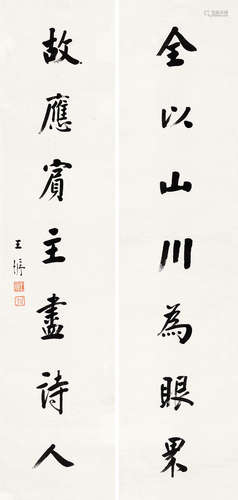 全以山川為眼界
故應賓主盡詩人
王